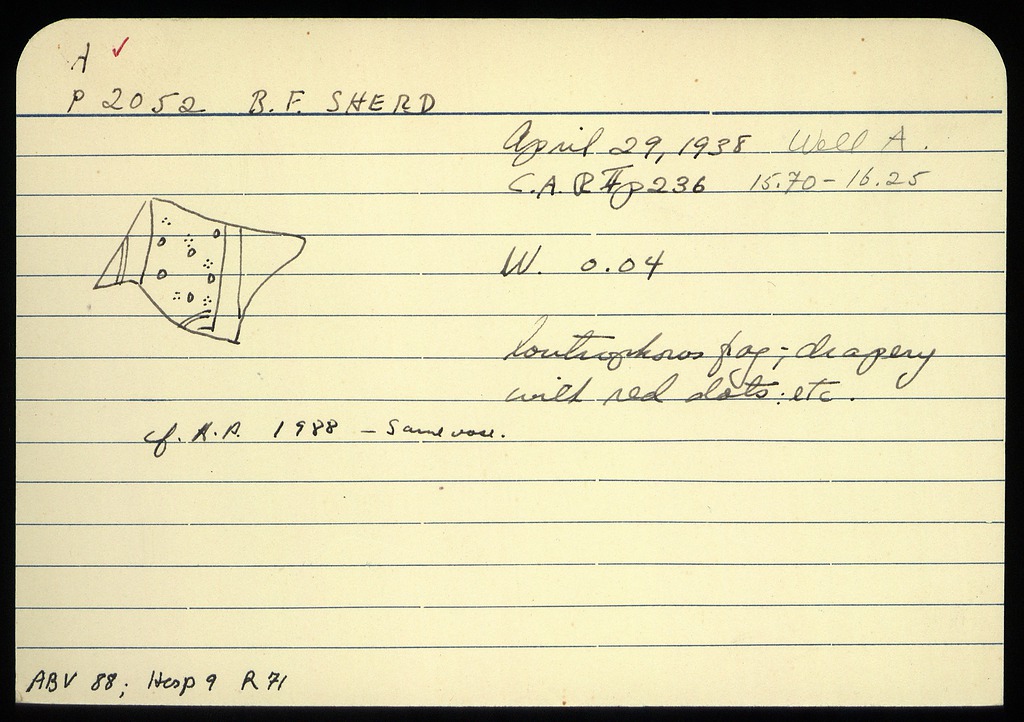 A ✓
P 2052 B.F. SHERD
April 29, 1938 Well A.
C.A. R II p 236 15.70 - 16.25
W. 0.04
loutrophoros frag; drapery
with red dots; etc.
cf. A.P. 1988 - Same vase.
ABV 88; Hesp 9 R 71